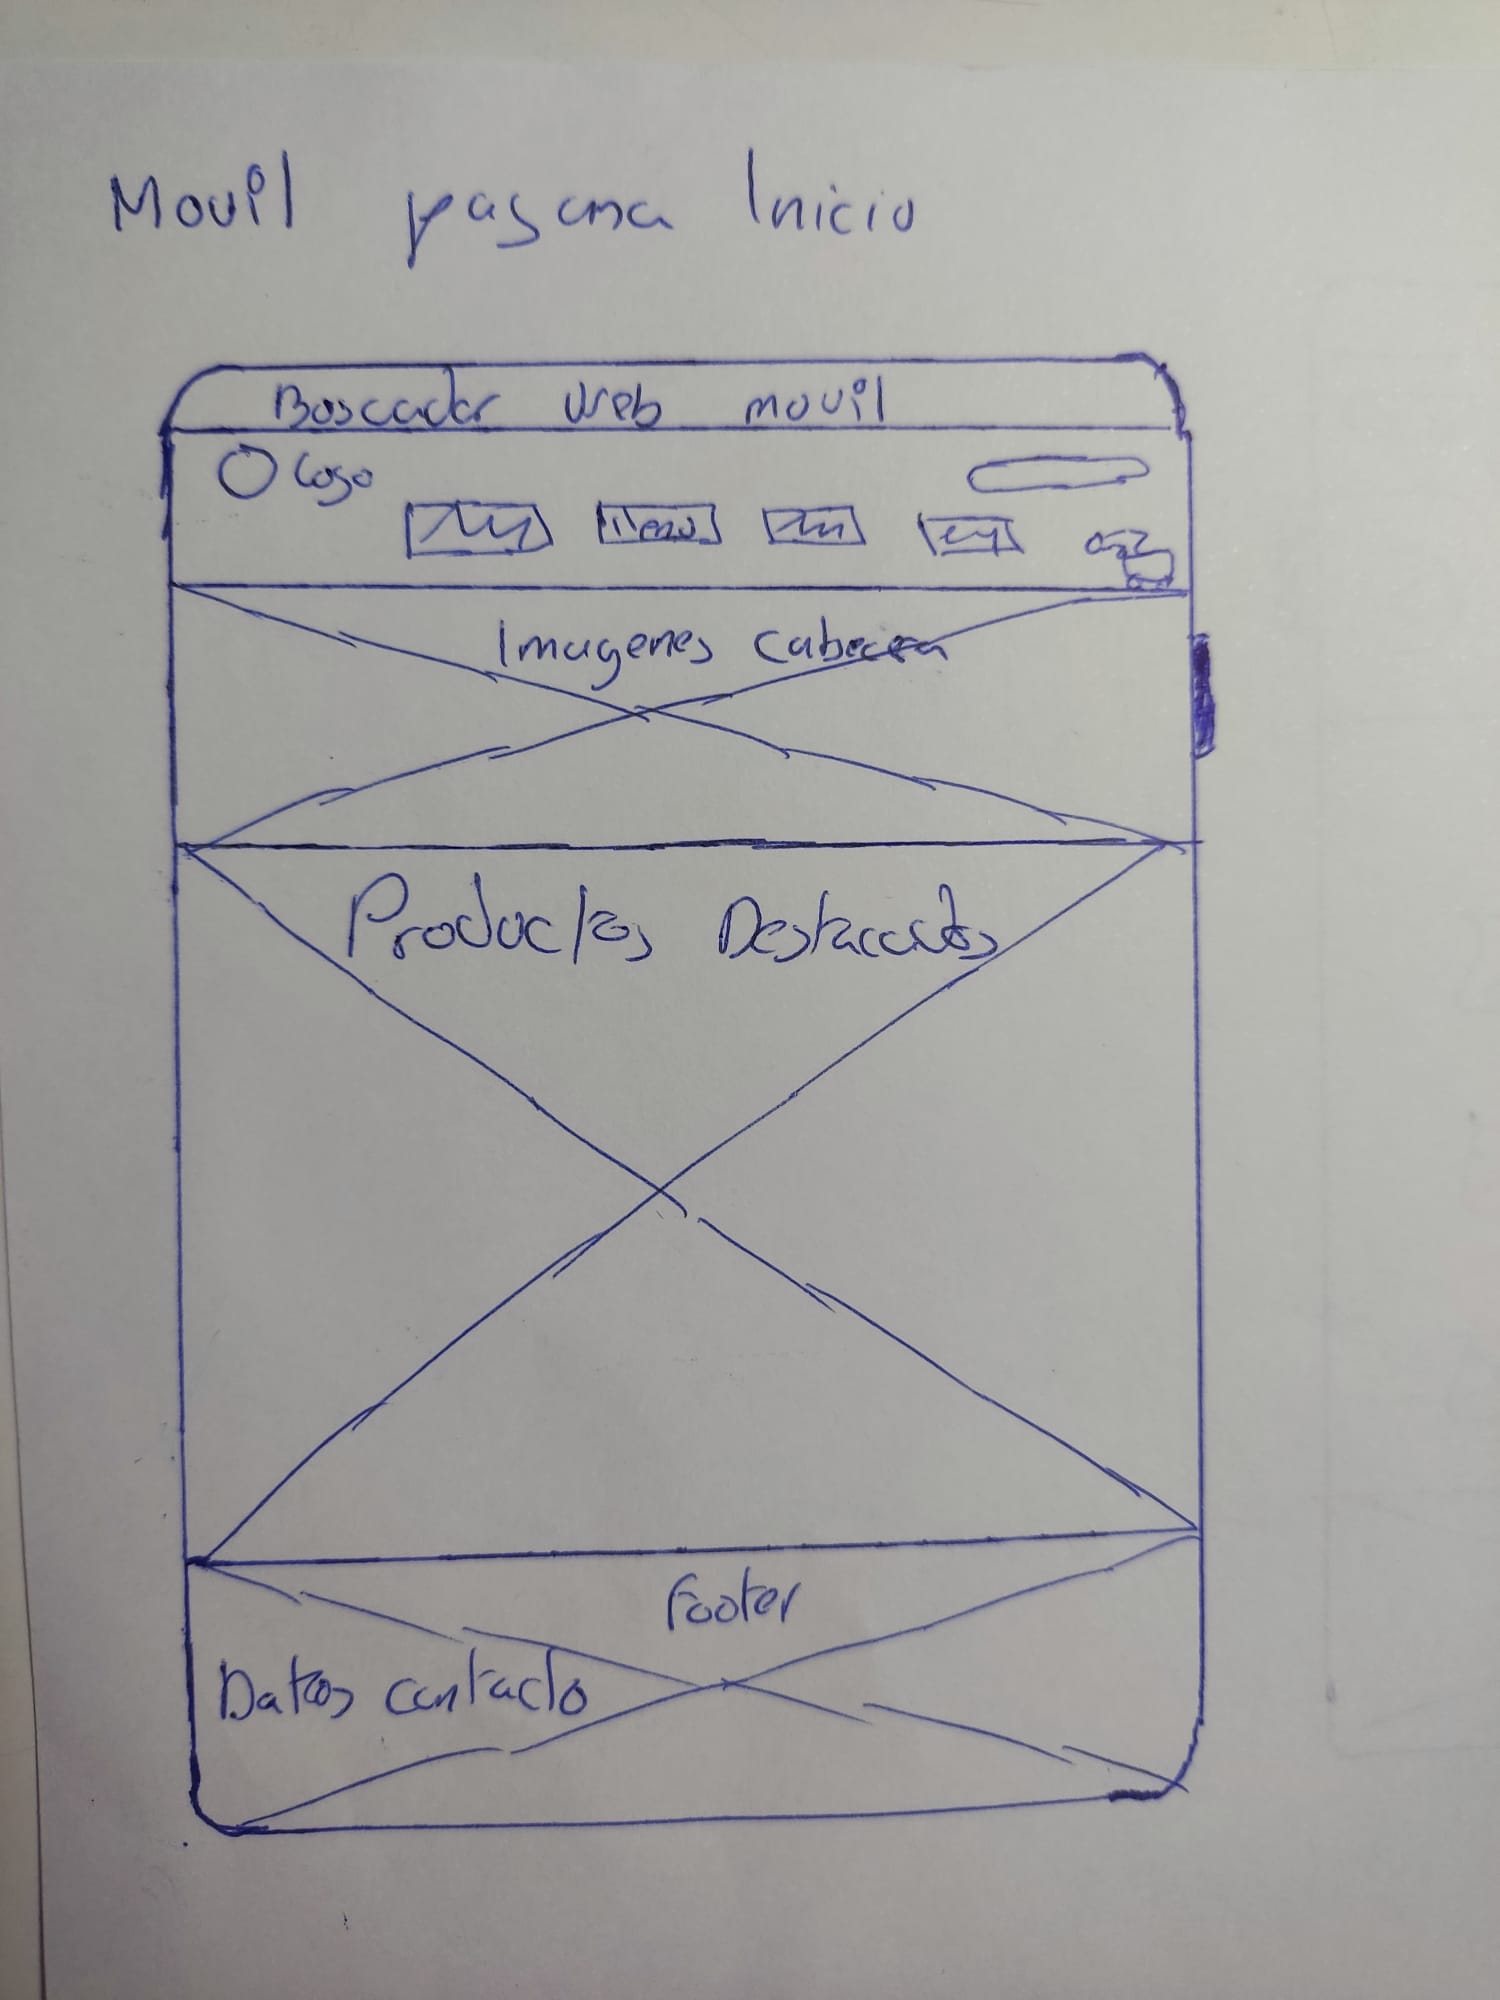 Movil pagina Inicio
Boscador Web movil
Logo
Menu
Imagenes cabecera
Productos Destacados
Footer
Datos contacto